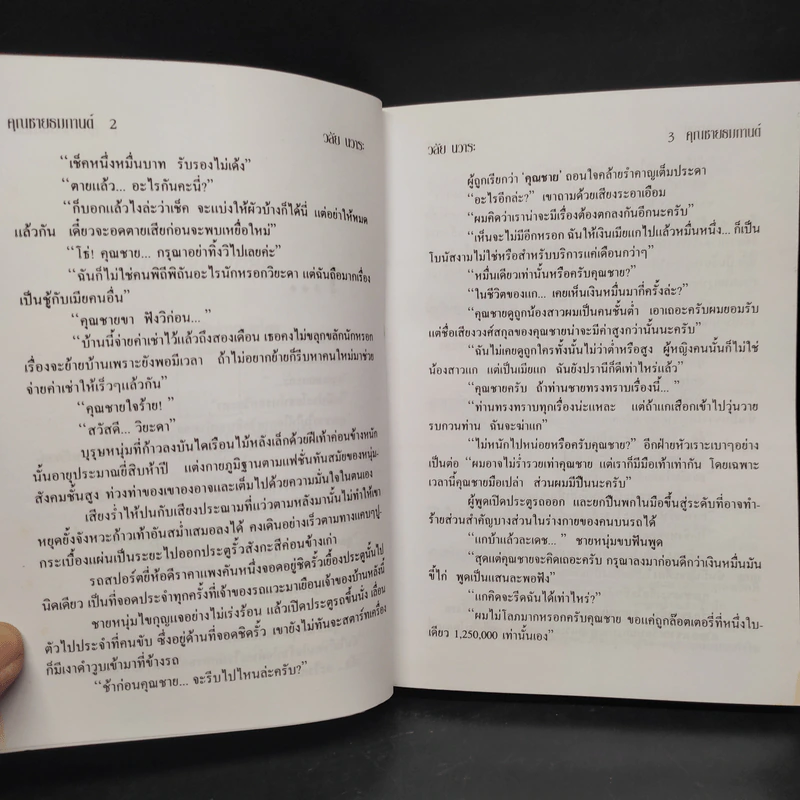 คุณชายธมกานต์ 2
วลัย นวาระ
“เช็คหนึ่งหมื่นบาท รับรองไม่เด้ง”
“ตายแล้ว... อะไรกันคะนี่?”
“ก็บอกแล้วไงล่ะว่าเช็ค จะแบ่งให้ผัวบ้างก็ได้นี่ แต่อย่าให้หมด
แล้วกัน เดี๋ยวจะอดตายเสียก่อนจะพบเหยื่อใหม่”
“โธ่! คุณชาย... กรุณาอย่าทิ้งวิไปเลยค่ะ”
“ฉันก็ไม่ใช่คนพิถีพิถันอะไรนักหรอกวิยะดา แต่ฉันถือมากเรื่อง
เป็นชู้กับเมียคนอื่น”
“คุณชายขา ฟังวิก่อน... ”
“บ้านนี้จ่ายค่าเช่าไว้แล้วถึงสองเดือน เธอคงไม่ขลุกขลักนักหรอก
เรื่องจะย้ายบ้านเพราะยังพอมีเวลา ถ้าไม่อยากย้ายก็รีบหาคนใหม่มาช่วย
จ่ายค่าเช่าให้เร็วๆแล้วกัน”
“คุณชายใจร้าย! ”
“สวัสดี... วิยะดา”
บุรุษหนุ่มที่ก้าวลงบันไดเรือนไม้หลังเล็กด้วยฝีเท้าค่อนข้างหนัก
นั้นอายุประมาณยี่สิบห้าปี แต่งกายภูมิฐานตามแฟชั่นทันสมัยของหนุ่ม-
สังคมชั้นสูง ท่วงท่าของเขาองอาจและเต็มไปด้วยความมั่นใจในตนเอง
เสียงร่ำไห้ปนกับเสียงประณามที่แว่วตามหลังมานั้นไม่ทำให้เขา
หยุดยั้งจังหวะก้าวเท้าอันสม่ำเสมอลงได้ คงเดินอย่างเร็วตามทางแคบๆปู-
กระเบื้องแผ่นเป็นระยะไปออกประตูรั้วสังกะสีค่อนข้างเก่า
รถสปอร์ตยี่ห้อดีราคาแพงคันหนึ่งจอดอยู่ชิดรั้วเยื้องประตูนั้นไป
นิดเดียว เป็นที่จอดประจำทุกครั้งที่เจ้าของรถแวะมาเยือนเจ้าของบ้านหลังนี้
ชายหนุ่มไขกุญแจอย่างไม่เร่งร้อน แล้วเปิดประตูรถขึ้นนั่ง เลื่อน
ตัวไปประจำที่คนขับ ซึ่งอยู่ด้านที่จอดชิดรั้ว เขายังไม่ทันจะสตาร์ทเครื่อง
ก็มีเงาดำวูบเข้ามาที่ข้างรถ
“ช้าก่อนคุณชาย... จะรีบไปไหนล่ะครับ?”
วลัย นวาระ
3 คุณชายธมกานต์
ผู้ถูกเรียกว่า ‘คุณชาย’ ถอนใจคล้ายรำคาญเต็มประดา
“อะไรอีกล่ะ?” เขาถามด้วยเสียงระอาเอือม
“ผมคิดว่าเราน่าจะมีเรื่องต้องตกลงกันอีกนะครับ”
“เห็นจะไม่มีอีกหรอก ฉันให้เงินเมียแกไปแล้วหมื่นหนึ่ง... ก็เป็น
โบนัสงามไม่ใช่หรือสำหรับบริการแค่เดือนกว่าๆ”
“หมื่นเดียวเท่านั้นหรือครับคุณชาย?”
“ในชีวิตของแก... เคยเห็นเงินหมื่นมากี่ครั้งล่ะ?”
“คุณชายดูถูกน้องสาวผมเป็นคนชั้นต่ำ เอาเถอะครับผมยอมรับ
แต่ชื่อเสียงวงศ์สกุลของคุณชายน่าจะมีค่าสูงกว่านั้นนะครับ”
“ฉันไม่เคยดูถูกใครทั้งนั้นไม่ว่าต่ำหรือสูง ผู้หญิงคนนั้นก็ไม่ใช่
น้องสาวแก แต่เป็นเมียแก ฉันยังปรานีก็ดีเท่าไหร่แล้ว”
“คุณชายครับ ถ้าท่านชายทรงทราบเรื่องนี้... ”
“ท่านทรงทราบทุกเรื่องน่ะแหละ แต่ถ้าแกเสือกเข้าไปวุ่นวาย
รบกวนท่าน ฉันจะฆ่าแก”
“ไม่หนักไปหน่อยหรือครับคุณชาย?” อีกฝ่ายหัวเราะเบาๆอย่าง
เป็นต่อ “ผมอาจไม่ร่ำรวยเท่าคุณชาย แต่เราก็มีมือเท้าเท่ากัน โดยเฉพาะ
เวลานี้คุณชายมือเปล่า ส่วนผมมีปืนนะครับ”
ผู้พูดเปิดประตูรถออก และยกปืนพกในมือขึ้นสู่ระดับที่อาจทำ-
ร้ายส่วนสำคัญบางส่วนในร่างกายของคนบนรถได้
“แกบ้าแล้วละเดช... ” ชายหนุ่มขบฟันพูด
“สุดแต่คุณชายจะคิดเถอะครับ กรุณาลงมาก่อนดีกว่าเงินหมื่นมัน
ขี้ไก่ พูดเป็นแสนละพอฟัง”
“แกคิดจะรีดฉันได้เท่าไหร่?”
“ผมไม่โลภมากหรอกครับคุณชาย ขอแค่ถูกล๊อตเตอรี่ที่หนึ่งใบ-
เดียว 1,250,000 เท่านั้นเอง”